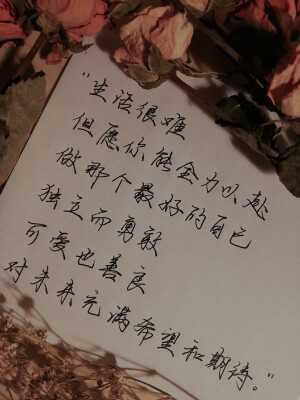 "生活很难
但愿你能全力以赴
做那个最好的自己
独立而勇敢
可爱也善良
对未来充满希望和期待。"